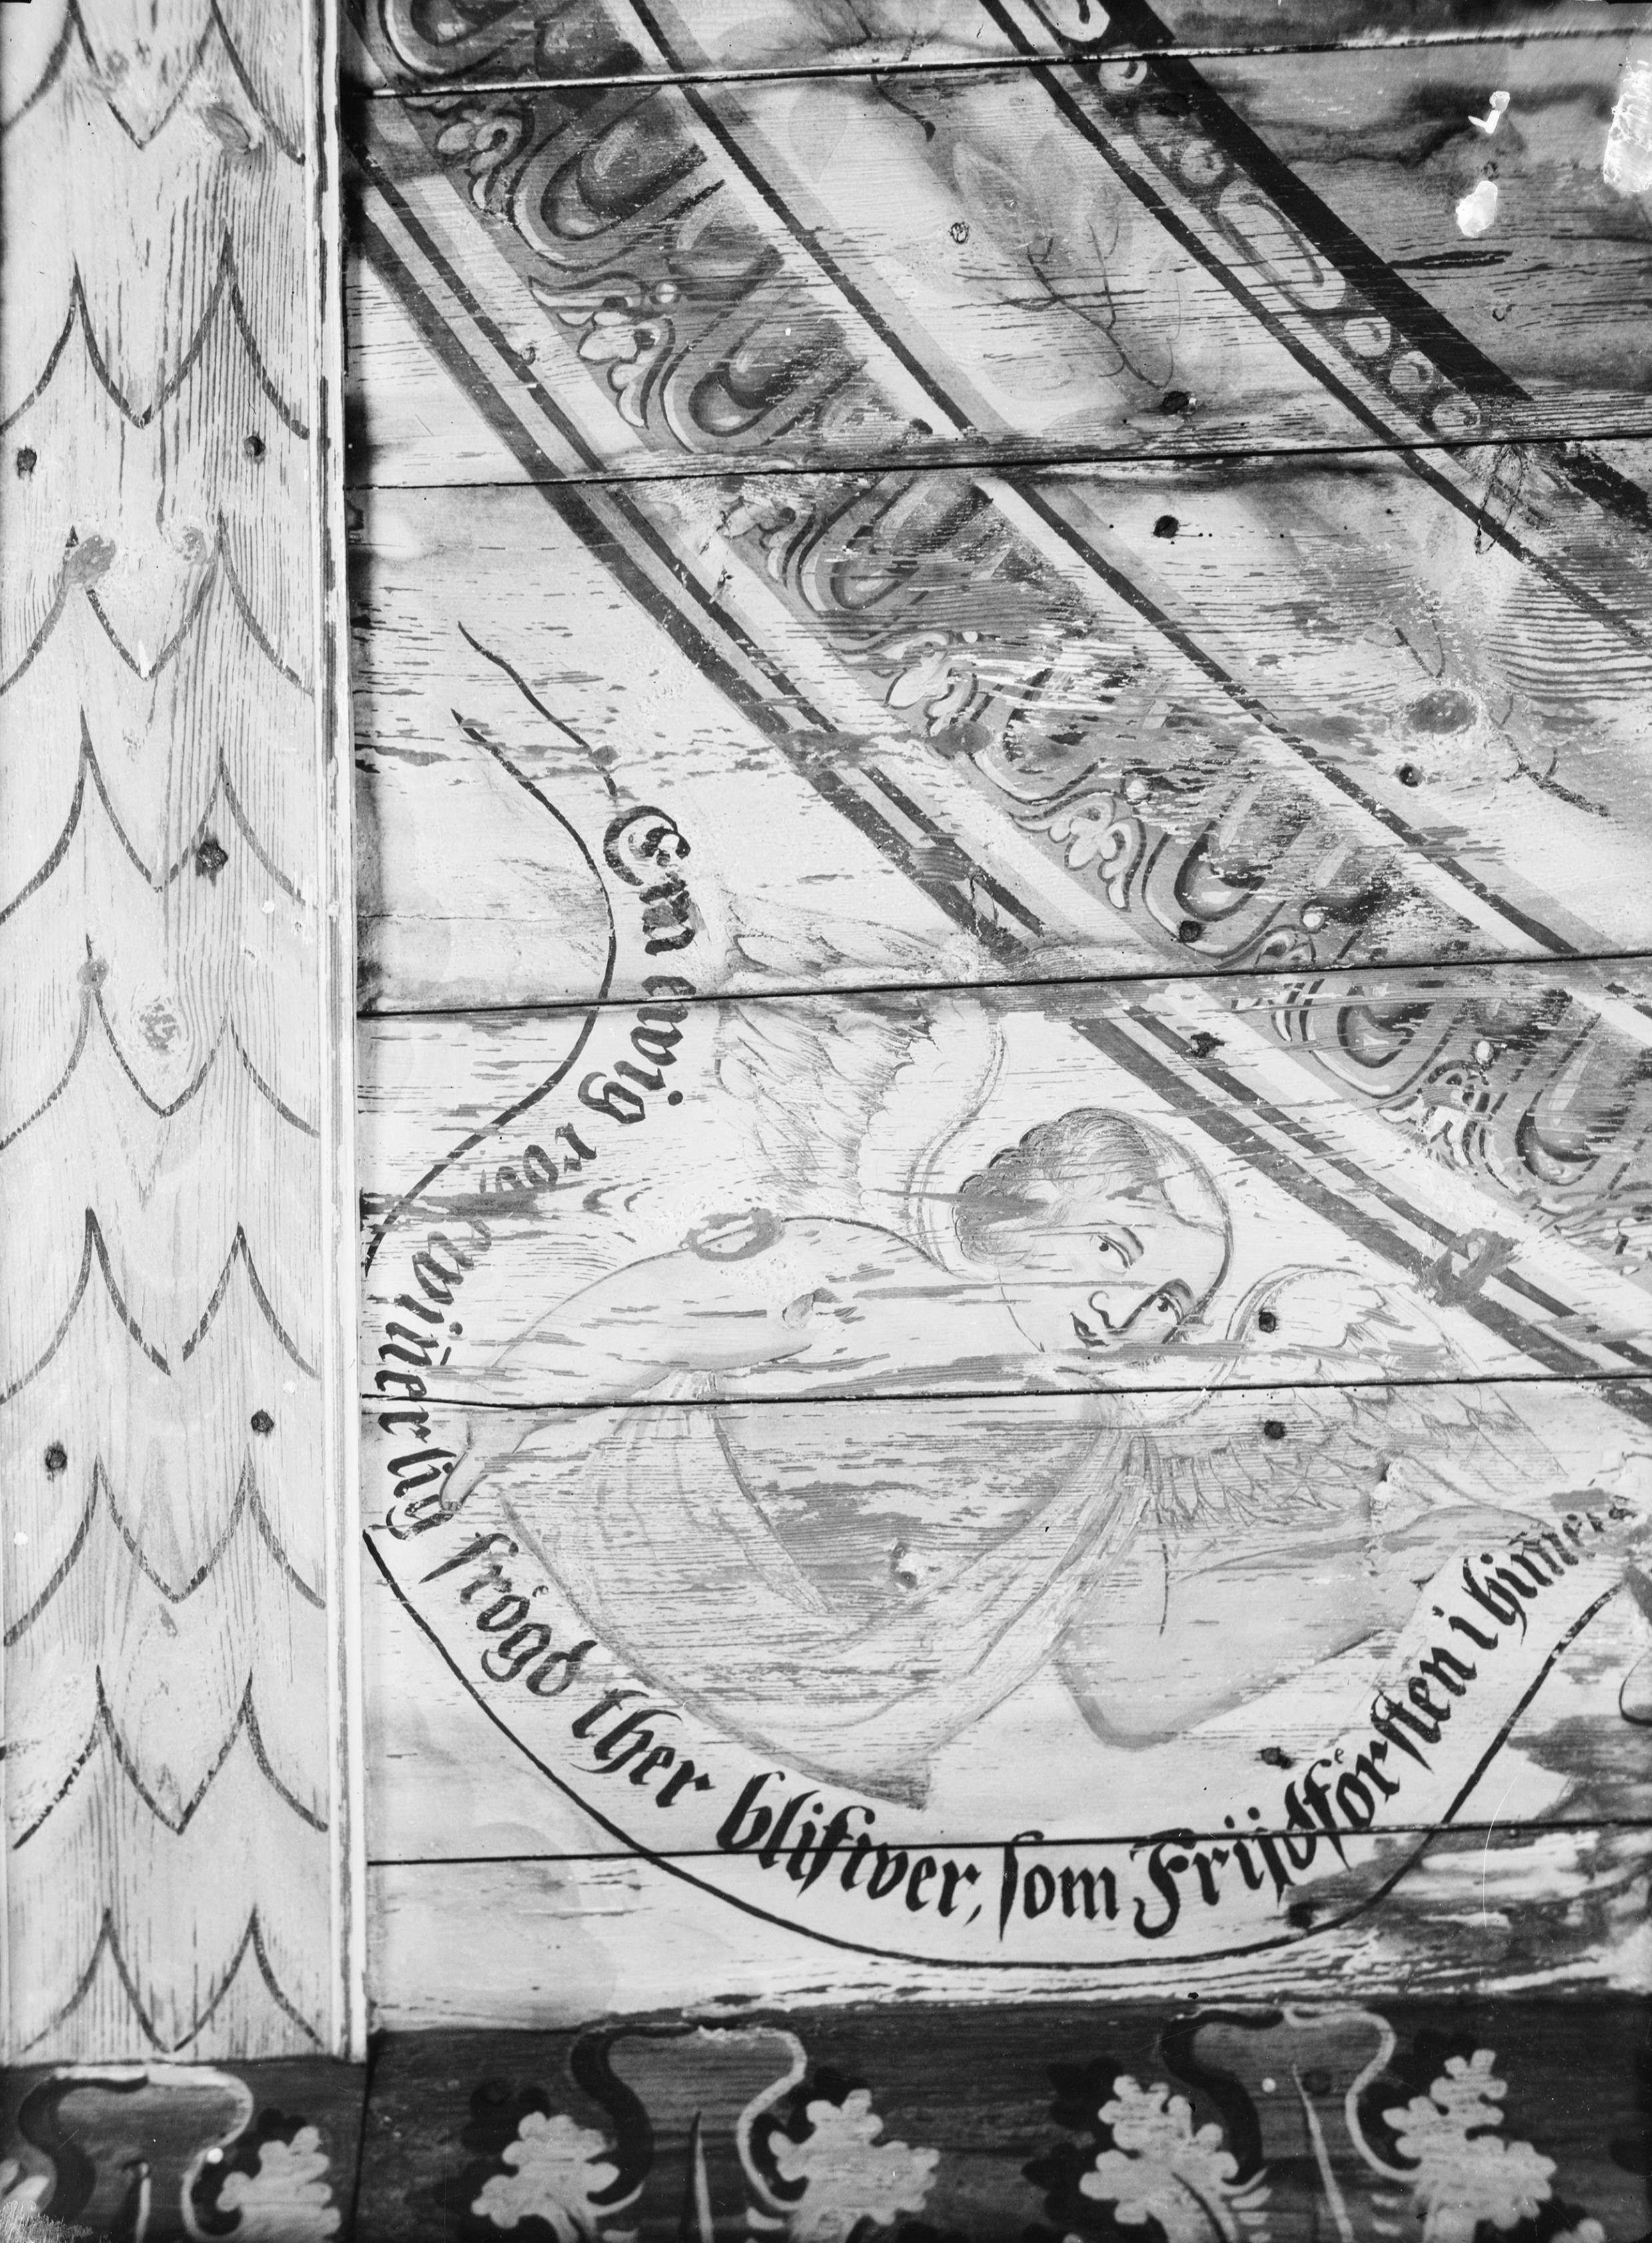 Em ewig röst ewinerlig frögd ther blifwer, som Frijdförsten i himel